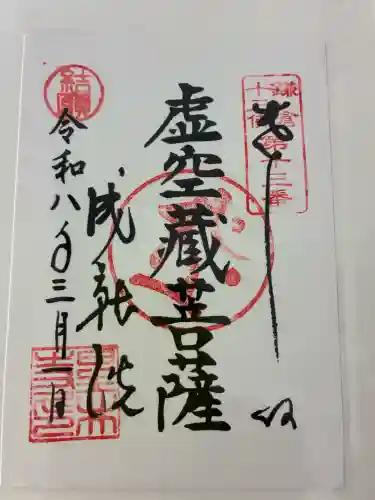 鎌倉第十三番
十三佛
奉拝
虚空蔵菩薩
成就院
令和八年三月一日
結願